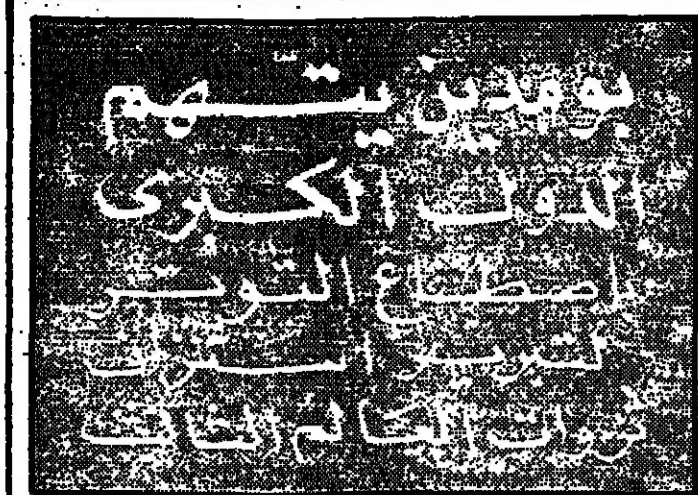 بومدين يتهم
الدول الكبرى
باصطناع التوتر
لتبرير استنزاف
ثروات العالم الثالث